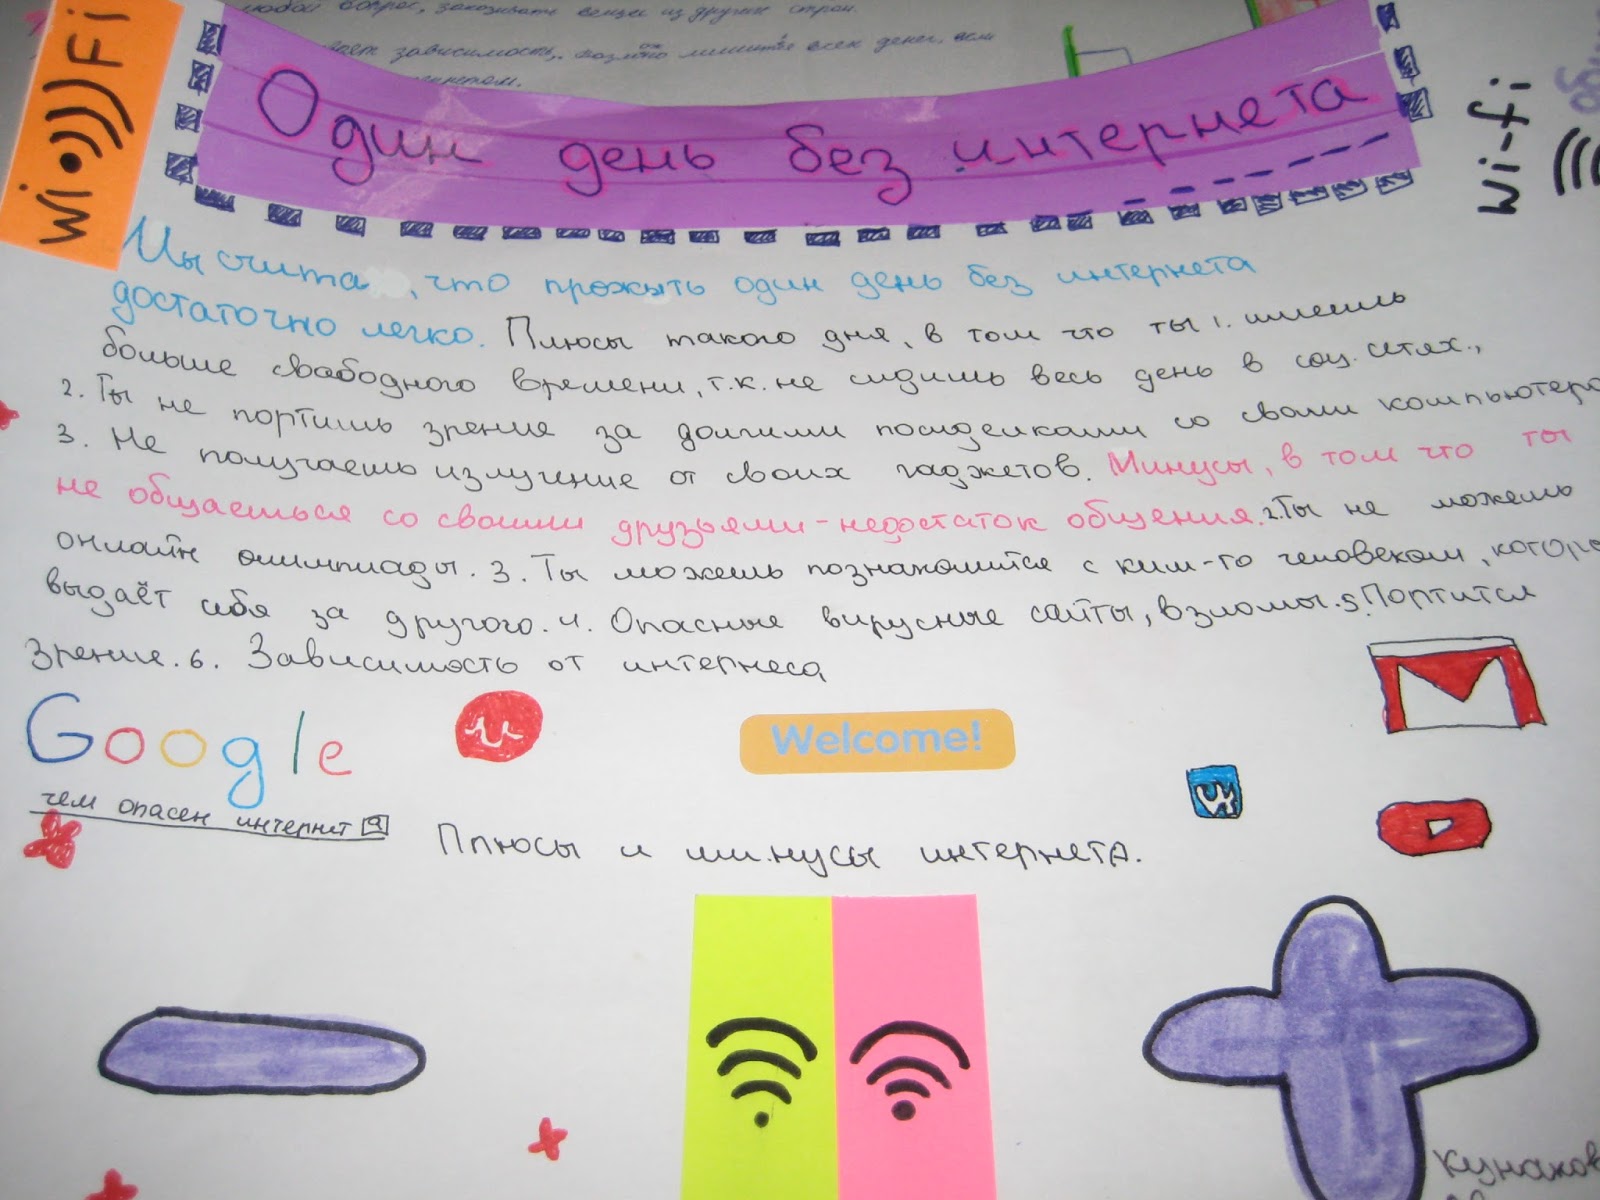 любой вопрос, заказывать вещи из других стран.
зависимость, возможно лишиться всех денег, если
интернетом.
Wi Fi
Один день без интернета
Wi-fi
Мы счита , что прожыть один день без интернета
достаточно легко. Плюсы такого дня, в том что ты 1. имеешь
больше свабодного времени, т.к. не сидишь весь день в соц. сетях.,
2. Ты не портишь зрение за долгими посиделками со своим компьютеро
3. Не получаешь излучение от своих гаджетов. Минусы, в том что ты
не общаешься со своими друзьями-недостаток общения. 2.Ты не можешь
онлайн олимпиады. 3. Ты можешь познакомится с ким-то человеком, которо
выдаёт себя за другого. 4. Опасные вирусные сайты, взломы. 5. Портится
Зрение. 6. Зависимость от интернеса
Google
Welcome!
чем опасен интернет
Плюсы и минусы интернета.
M
VK
кунаков